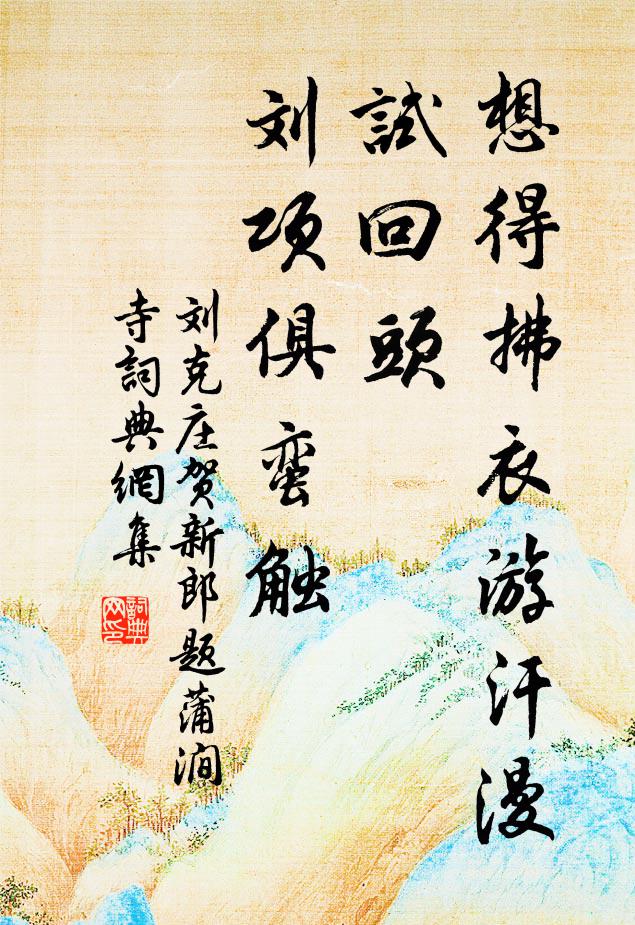 想得拂衣游汗漫
試回頭
刘項俱蛮触
刘克庄贺新郎题蒲涧
寺詞典網集
詞典
网印